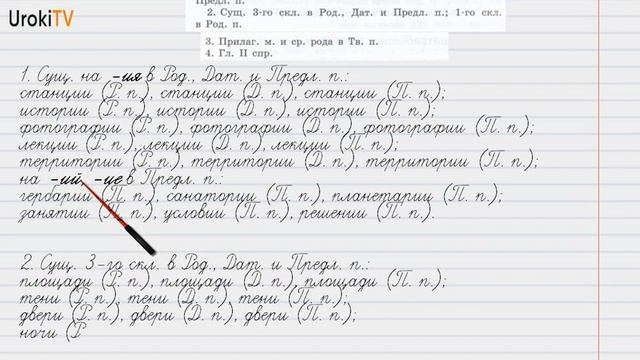 UrokiTV
Предл. п.
2. Сущ. 3-го скл. в Род., Дат. и Предл. п.; 1-го скл.
в Род. п.
3. Прилаг. м. и ср. рода в Тв. п.
4. Гл. II спр.
1. Сущ. на -ия в Род., Дат. и Предл. п.:
станции (Р. п.), станции (Д. п.), станции (П. п.);
истории (Р. п.), истории (Д. п.), истории (П. п.);
фотографии (Р. п.), фотографии (Д. п.), фотографии (П. п.);
лекции (Р. п.), лекции (Д. п.), лекции (П. п.);
территории (Р. п.), территории (Д. п.), территории (П. п.);
на -ий, -ие в Предл. п.:
гербарии (П. п.), санатории (П. п.), планетарии (П. п.);
занятии (П. п.), условии (П. п.), решении (П. п.).
2. Сущ. 3-го скл. в Род., Дат. и Предл. п.:
площади (Р. п.), площади (Д. п.), площади (П. п.);
тени (Р. п.), тени (Д. п.), тени (П. п.);
двери (Р. п.), двери (Д. п.), двери (П. п.);
ночи (Р